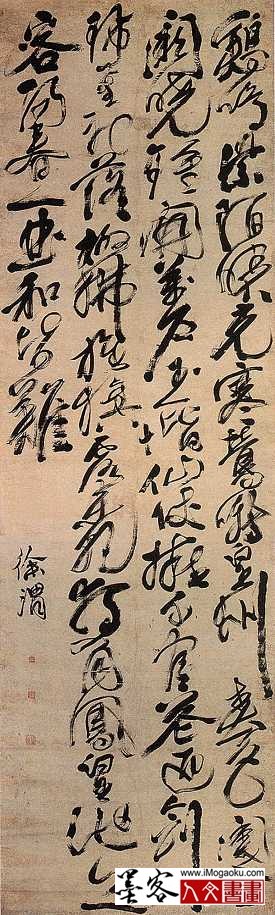 雞鳴紫陌曙光寒鶯囀皇州春色闌金
闕曉鐘開萬戶玉階仙仗擁千官花迎劍
珮星初落柳拂旌旗露未乾獨有鳳皇池上
客陽春一曲和皆難
徐渭
墨客
www.iMogaoku.com
人文書畫